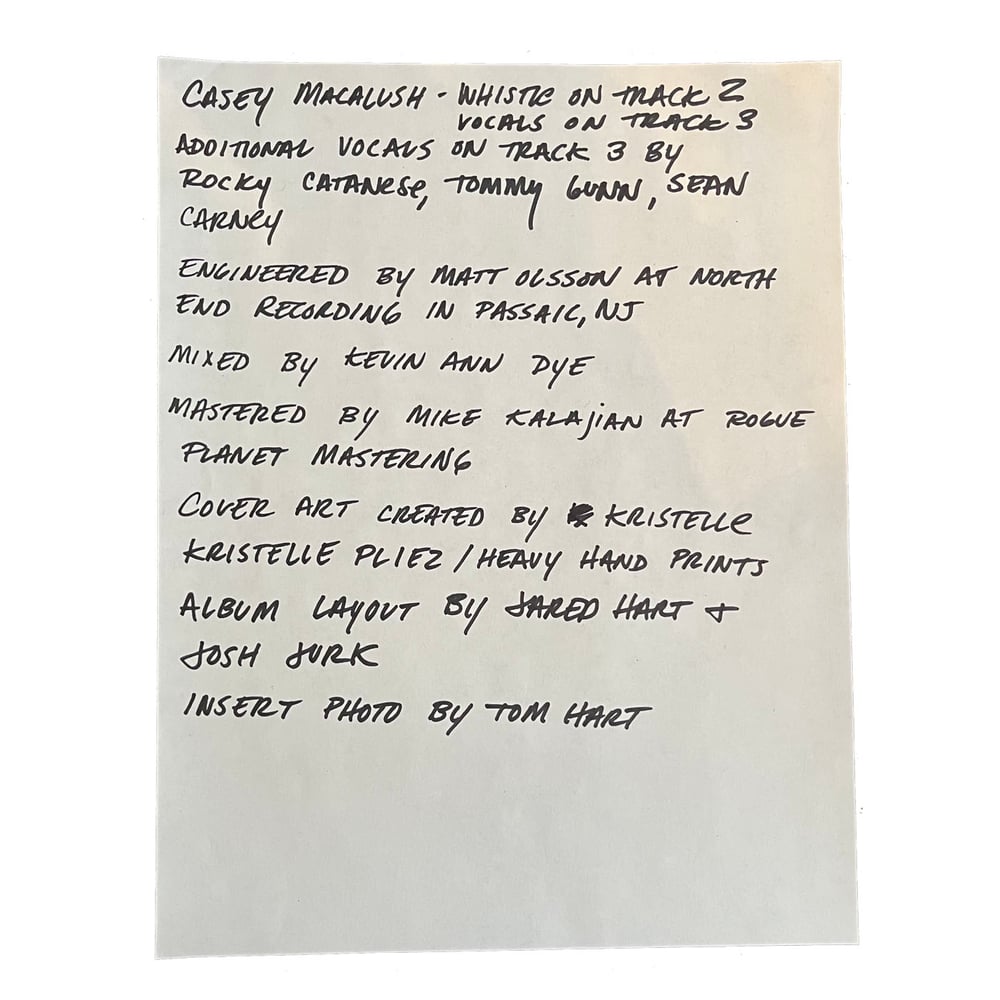 CASEY MACALUSH - WHISTLE ON TRACK 2
VOCALS ON TRACK 3
ADDITIONAL VOCALS ON TRACK 3 BY
ROCKY CATANESE, TOMMY GUNN, SEAN
CARNEY
ENGINEERED BY MATT OLSSON AT NORTH
END RECORDING IN PASSAIC, NJ
MIXED BY KEVIN ANN DYE
MASTERED BY MIKE KALAJIAN AT ROGUE
PLANET MASTERING
COVER ART CREATED BY KRISTELLE
KRISTELLE PLIEZ / HEAVY HAND PRINTS
ALBUM LAYOUT BY JARED HART +
JOSH JURK
INSERT PHOTO BY TOM HART